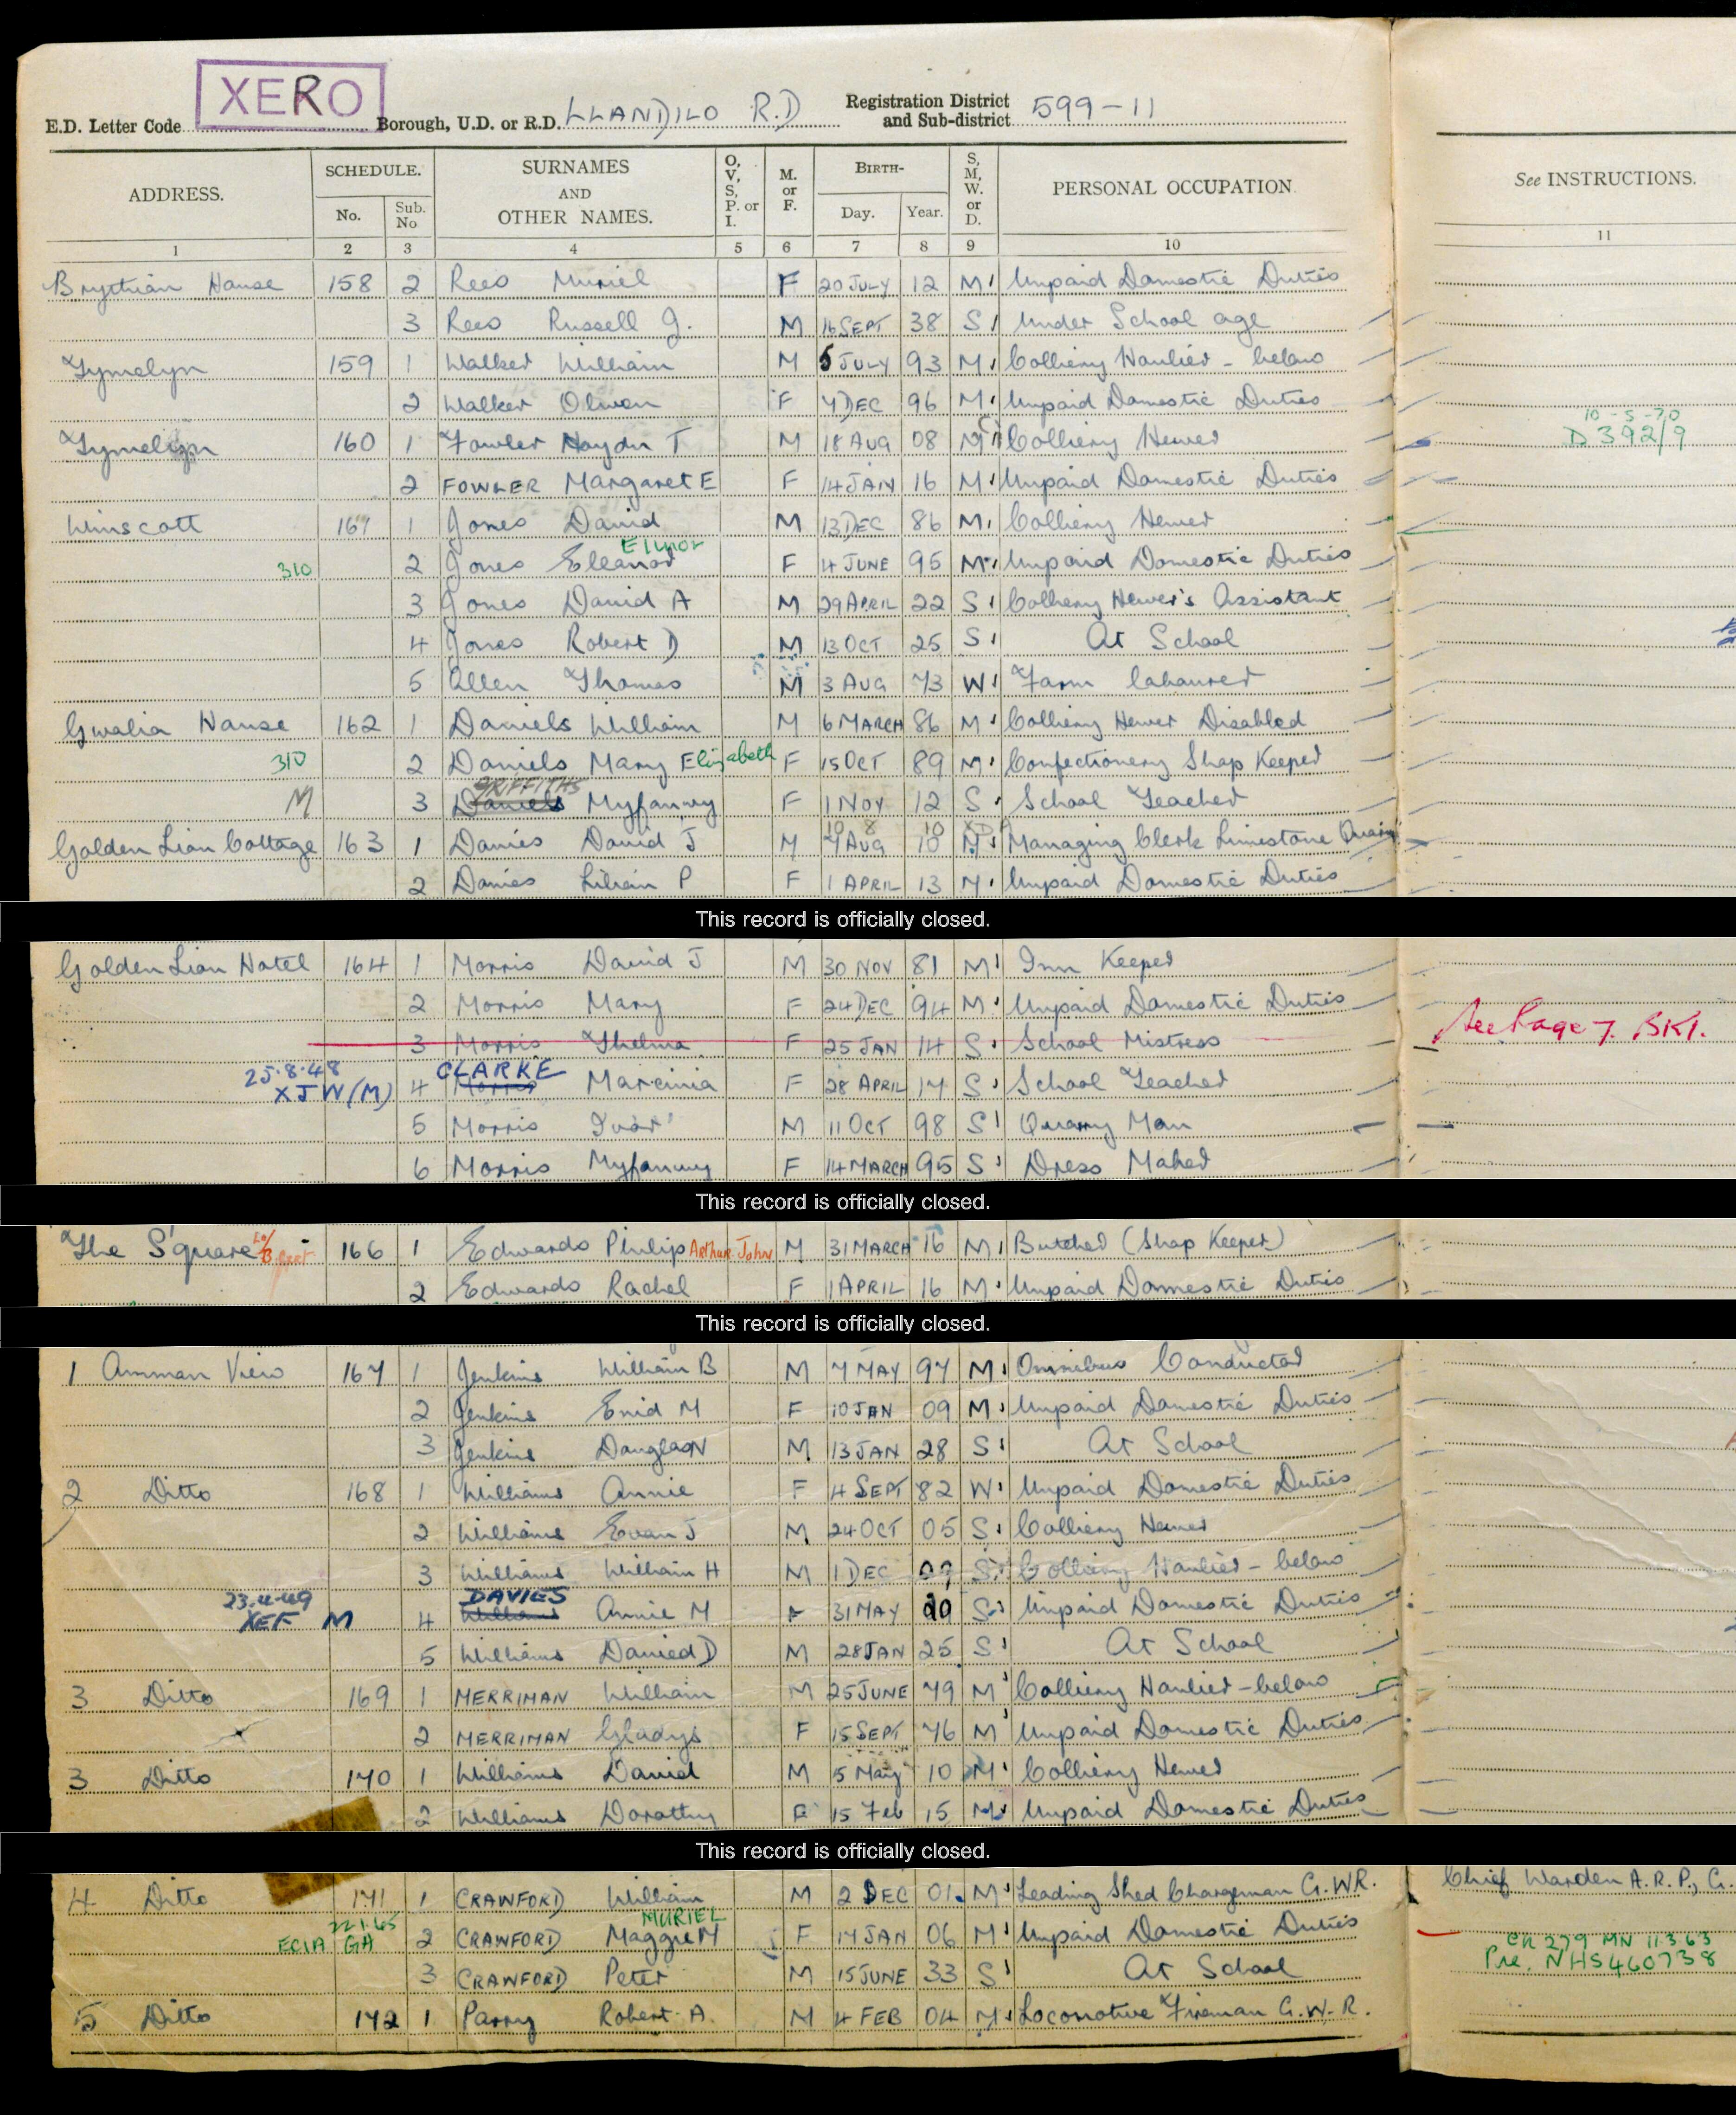 XERO
E.D. Letter Code Borough, U.D. or R.D. LLANDILO R.D Registration District and Sub-district 599-11
ADDRESS. SCHEDULE. No. Sub. No SURNAMES AND OTHER NAMES. O, V, S, P. or I. M. or F. BIRTH- Day. Year. S, M, W. or D. PERSONAL OCCUPATION. See INSTRUCTIONS.
1 2 3 4 5 6 7 8 9 10 11
Brythian House 158 2 Rees Muriel F 20 JULY 12 M Unpaid Domestic Duties
3 Rees Russell G. M 16 SEPT 38 S Under School age
Tymelyn 159 1 Walker William M 5 JULY 93 M Colliery Haulier - below
2 Walker Olwen F 7 DEC 96 M Unpaid Domestic Duties
10-5-70
Tymelyn 160 1 Fowler Haydn T M 18 AUG 08 M Colliery Hewer D 392/9
2 FOWLER Margaret E F 14 JAN 16 M Unpaid Domestic Duties
Winscott 161 1 Jones David M 13 DEC 86 M Colliery Hewer
Elinor
310 2 Jones Eleanor F 4 JUNE 95 M Unpaid Domestic Duties
3 Jones David A M 29 APRIL 22 S Colliery Hewer's Assistant
4 Jones Robert D M 13 OCT 25 S At School
5 Allen Thomas M 3 AUG 73 W Farm Labourer
Gwalia House 162 1 Daniels William M 6 MARCH 86 M Colliery Hewer Disabled
310 2 Daniels Mary Elizabeth F 15 OCT 89 M Confectionery Shop Keeper
GRIFFITHS
M 3 Daniels Myfanwy F 1 NOV 12 S School Teacher
10 8 10
Golden Lion Cottage 163 1 Davies David J M 7 AUG 10 M Managing Clerk Limestone Quarry
2 Davies Lilian P F 1 APRIL 13 M Unpaid Domestic Duties
This record is officially closed.
Golden Lion Hotel 164 1 Morris David J M 30 NOV 81 M Inn Keeper
2 Morris Mary F 24 DEC 94 M Unpaid Domestic Duties
3 Morris Thelma F 25 JAN 14 S School Mistress See Page 7. BK1.
25.8.48 CLARKE
XJW (M) 4 Morris Marcinia F 28 APRIL 17 S School Teacher
5 Morris Ivor M 11 OCT 98 S Quarry Man
6 Morris Myfanwy F 14 MARCH 95 S Dress Maker
This record is officially closed.
The Square 166 1 Edwards Philip Arthur John M 31 MARCH 16 M Butcher (Shop Keeper)
2 Edwards Rachel F 1 APRIL 16 M Unpaid Domestic Duties
This record is officially closed.
1 Amman View 167 1 Jenkins William B M 7 MAY 97 M Omnibus Conductor
2 Jenkins Enid M F 10 JAN 09 M Unpaid Domestic Duties
3 Jenkins Douglas N M 13 JAN 28 S At School
2 Ditto 168 1 Williams Annie F 4 SEPT 82 W Unpaid Domestic Duties
2 Williams Evan J M 24 OCT 05 S Colliery Hewer
3 Williams William H M 1 DEC 09 S Colliery Haulier - below
23.4.49 DAVIES
XEF M 4 Williams Annie M F 31 MAY 20 S Unpaid Domestic Duties
5 Williams Daniel D M 28 JAN 25 S At School
3 Ditto 169 1 MERRIMAN William M 25 JUNE 79 M Colliery Haulier - below
2 MERRIMAN Gladys F 15 SEPT 76 M Unpaid Domestic Duties
3 Ditto 170 1 Williams David M 5 May 10 M Colliery Hewer
2 Williams Dorothy F 15 Feb 15 M Unpaid Domestic Duties
This record is officially closed.
4 Ditto 171 1 CRAWFORD William M 2 DEC 01 M Leading Shed Chargeman G.W.R. Chief Warden A.R.P., G.
22.1.65 MURIEL
ECIA GA 2 CRAWFORD Maggie M F 14 JAN 06 M Unpaid Domestic Duties CR 279 MN 11363
3 CRAWFORD Peter M 15 JUNE 33 S At School Pre. NHS460738
5 Ditto 172 1 Parry Robert A. M 4 FEB 04 M Locomotive Fireman G.W.R.